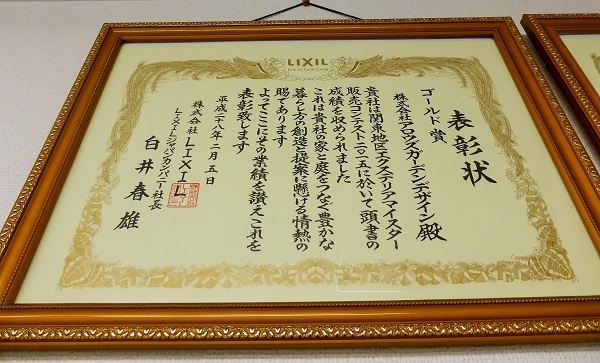 LIXIL
Link to Good Living
表彰状
ゴールド賞
株式会社エクロスガーデンデザイン殿
貴社は関東地区エクステリアマイスター
販売コンテスト二〇一五に於いて頭書の
成績を収められました
これは貴社の家と庭をつなぐ豊かな
暮らし方の創造と提案に懸ける情熱の
賜であります
よってここにその業績を讃えこれを
表彰致します
平成二十八年二月五日
株式会社LIXIL
LIXILジャパンカンパニー社長
白井春雄